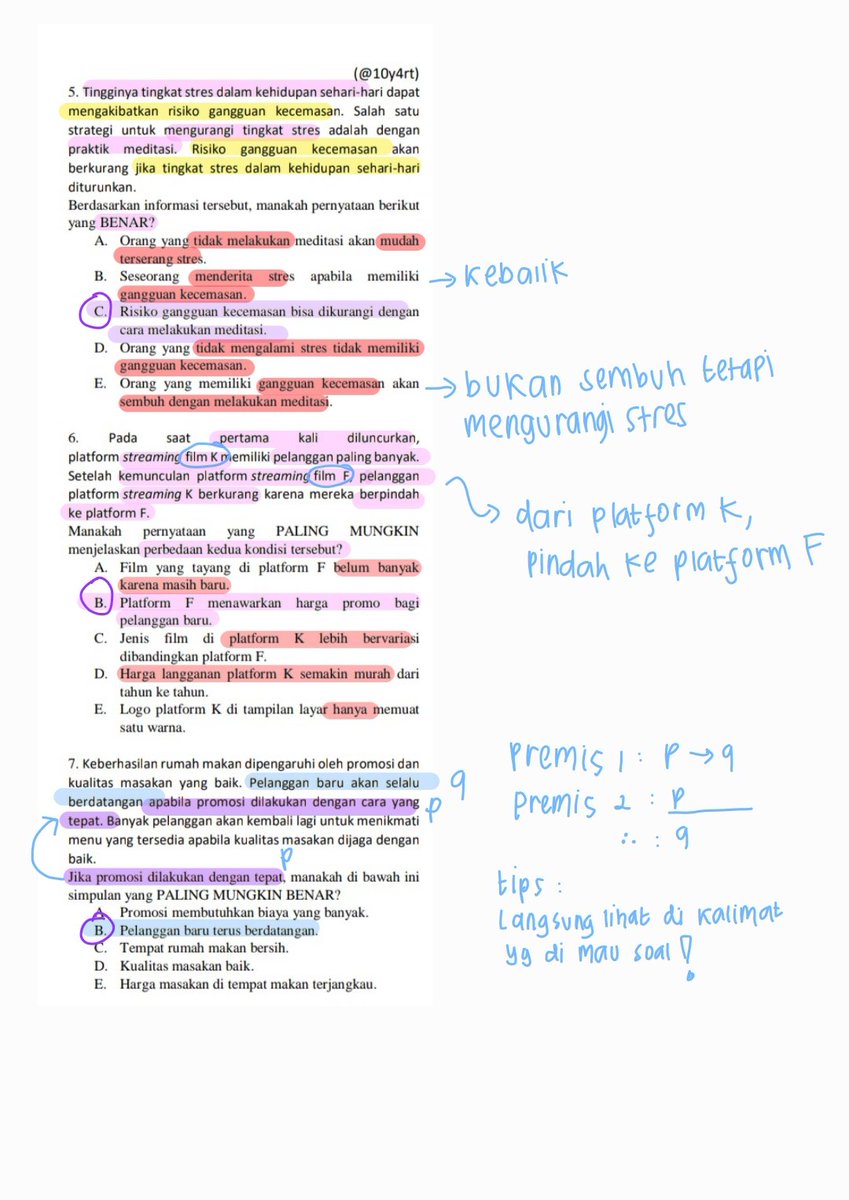 (@10y4rt)
5. Tingginya tingkat stres dalam kehidupan sehari-hari dapat
mengakibatkan risiko gangguan kecemasan. Salah satu
strategi untuk mengurangi tingkat stres adalah dengan
praktik meditasi. Risiko gangguan kecemasan akan
berkurang jika tingkat stres dalam kehidupan sehari-hari
diturunkan.
Berdasarkan informasi tersebut, manakah pernyataan berikut
yang BENAR?
A. Orang yang tidak melakukan meditasi akan mudah
terserang stres.
B. Seseorang menderita stres apabila memiliki
gangguan kecemasan.
→ kebalik
C. Risiko gangguan kecemasan bisa dikurangi dengan
cara melakukan meditasi.
D. Orang yang tidak mengalami stres tidak memiliki
gangguan kecemasan.
E. Orang yang memiliki gangguan kecemasan akan
sembuh dengan melakukan meditasi.
→ bukan sembuh tetapi
mengurangi stres
6. Pada saat pertama kali diluncurkan,
platform streaming film K memiliki pelanggan paling banyak.
Setelah kemunculan platform streaming film F, pelanggan
platform streaming K berkurang karena mereka berpindah
ke platform F.
→ dari platform K,
pindah ke platform F
Manakah pernyataan yang PALING MUNGKIN
menjelaskan perbedaan kedua kondisi tersebut?
A. Film yang tayang di platform F belum banyak
karena masih baru.
B. Platform F menawarkan harga promo bagi
pelanggan baru.
C. Jenis film di platform K lebih bervariasi
dibandingkan platform F.
D. Harga langganan platform K semakin murah dari
tahun ke tahun.
E. Logo platform K di tampilan layar hanya memuat
satu warna.
7. Keberhasilan rumah makan dipengaruhi oleh promosi dan
kualitas masakan yang baik. Pelanggan baru akan selalu
berdatangan apabila promosi dilakukan dengan cara yang
tepat. Banyak pelanggan akan kembali lagi untuk menikmati
menu yang tersedia apabila kualitas masakan dijaga dengan
baik.
q
p
p
Jika promosi dilakukan dengan tepat, manakah di bawah ini
simpulan yang PALING MUNGKIN BENAR?
A. Promosi membutuhkan biaya yang banyak.
B. Pelanggan baru terus berdatangan.
C. Tempat rumah makan bersih.
D. Kualitas masakan baik.
E. Harga masakan di tempat makan terjangkau.
premis 1 : p → q
premis 2 : p
∴ : q
tips :
Langsung lihat di kalimat
yg di mau soal !